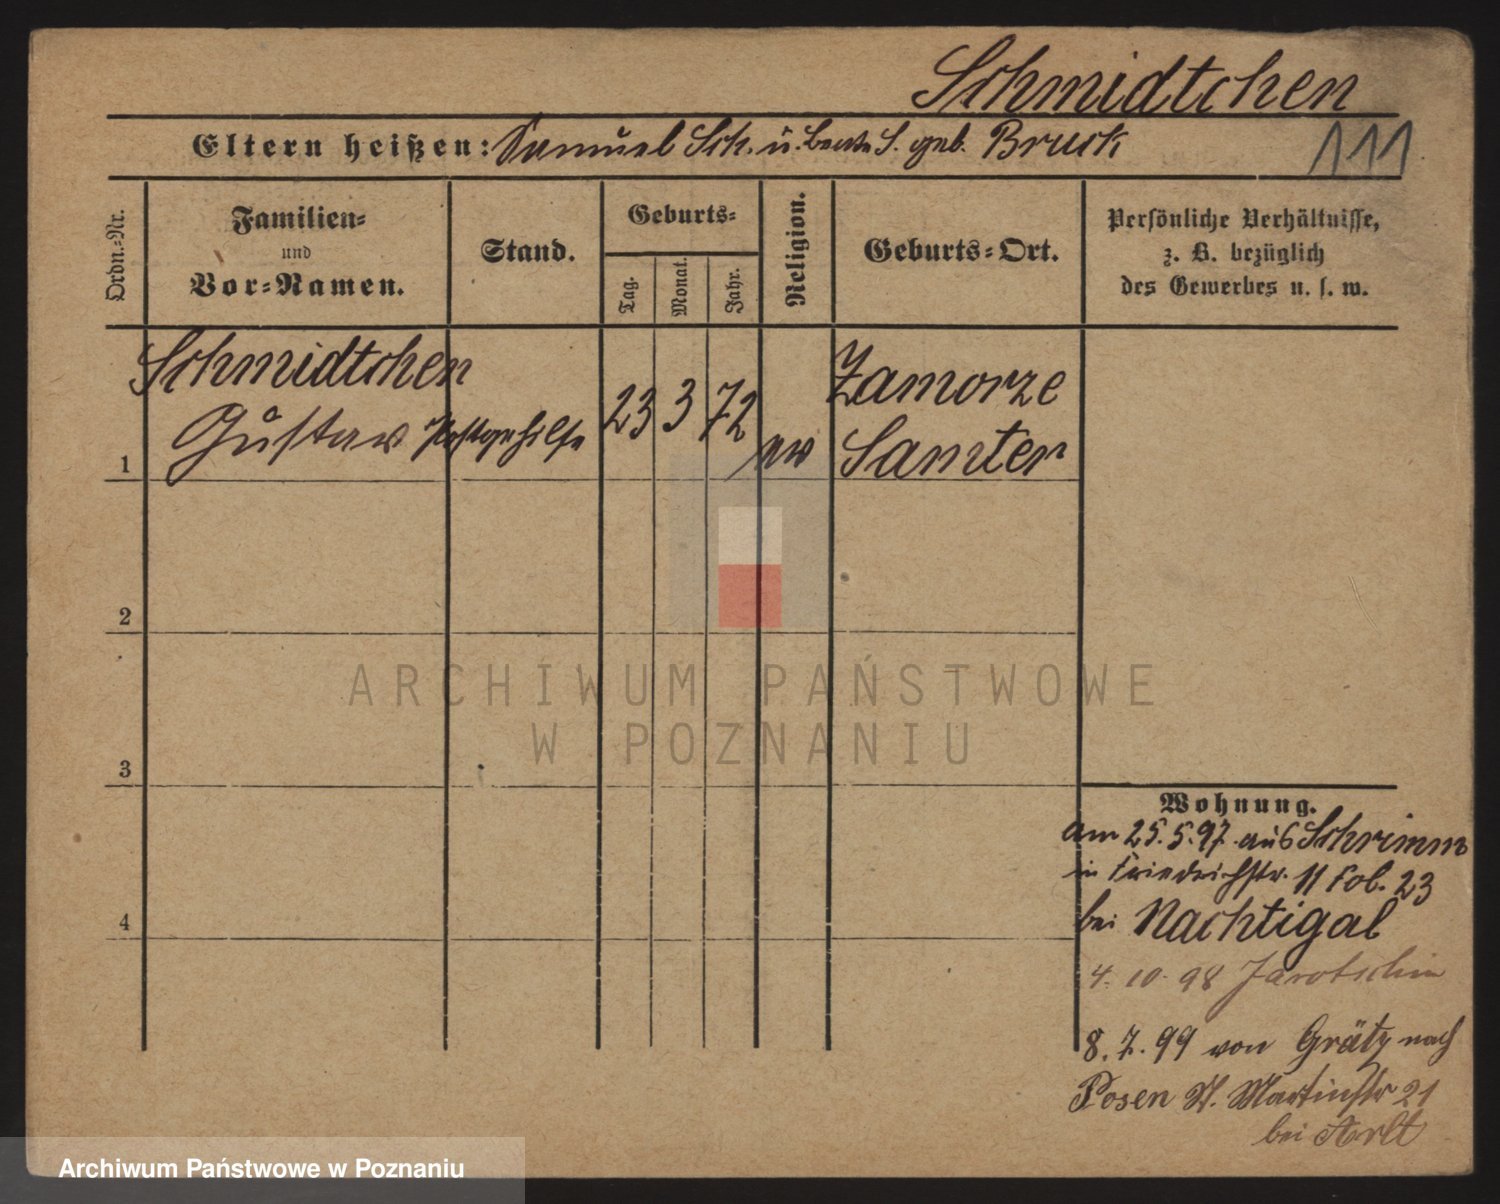 Schmidtchen
Eltern heißen: Samuel Sch. u. Beate S. geb. Bruck
111
Ordn.-Nr.
Familien-
und
Vor-Namen.
Stand.
Geburts-
Tag.
Monat.
Jahr.
Religion.
Geburts-Ort.
Persönliche Verhältnisse,
z. B. bezüglich
des Gewerbes u. s. w.
Schmidtchen
Gustav Postgehilfe 23 3 72 ev
Zamorze
Samter
1
2
3
4
ARCHIWUM PAŃSTWOWE
W POZNANIU
Wohnung.
am 25.5.97. aus Schrimm
in Friedrichstr. 11 Fol. 23
bei Nachtigal
4. 10. 98 Jarotschin
8. 7. 99 von Grätz nach
Posen St. Martinstr 21
bei Arlt
Archiwum Państwowe w Poznaniu